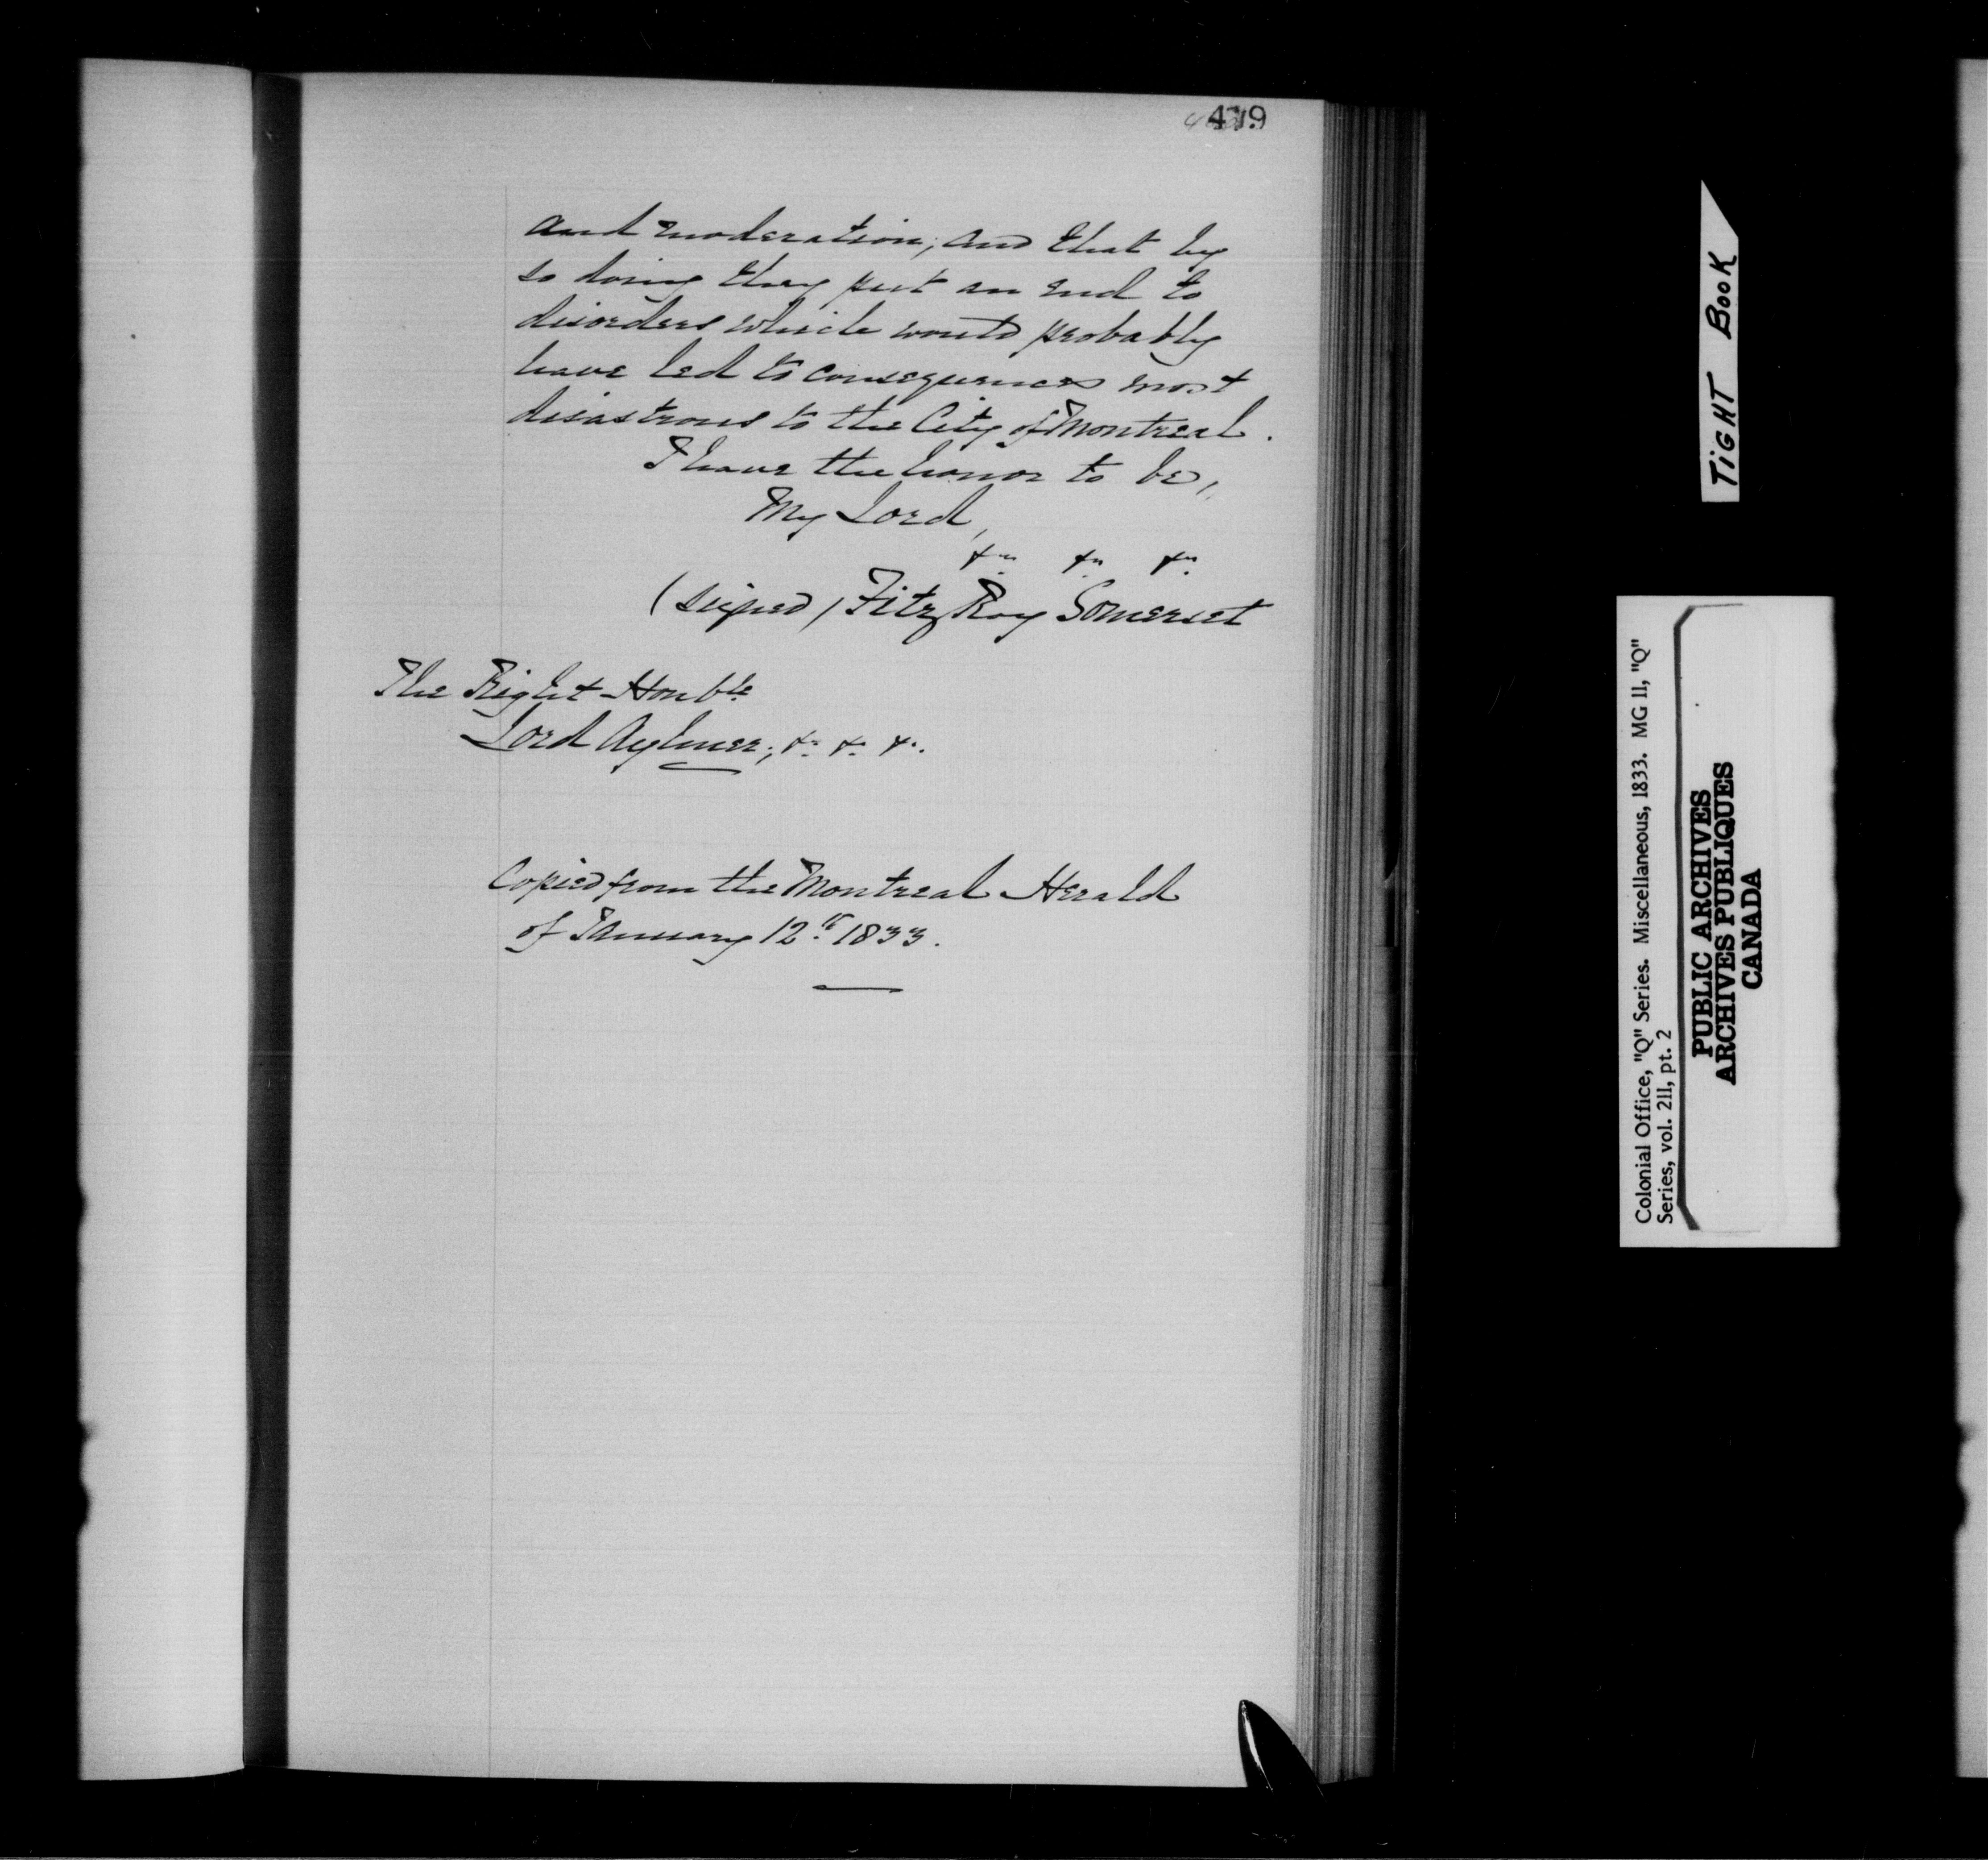 479
and moderation; and that by
so doing they put an end to
disorders which would probably
have led to consequences most
disastrous to the City of Montreal.
I have the honor to be,
My Lord,
&c. &c. &c.
(signed) FitzRoy Somerset
The Right Honble
Lord Aylmer; &c. &c. &c.
Copied from the Montreal Herald
of January 12th 1833.
TIGHT BOOK
Colonial Office, "Q" Series. Miscellaneous, 1833. MG 11, "Q"
Series, vol. 211, pt. 2
PUBLIC ARCHIVES
ARCHIVES PUBLIQUES
CANADA